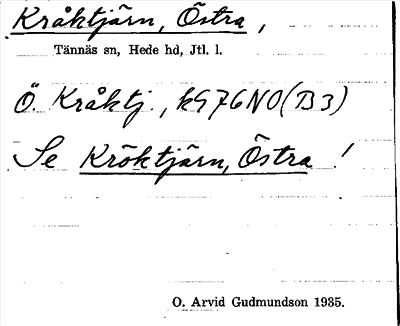 Kråktjärn, Östra,
Tännäs sn, Hede hd, Jtl. l.
Ö. Kråktj., k976NO(B3)
Se Kröktjärn, Östra!
O. Arvid Gudmundson 1935.